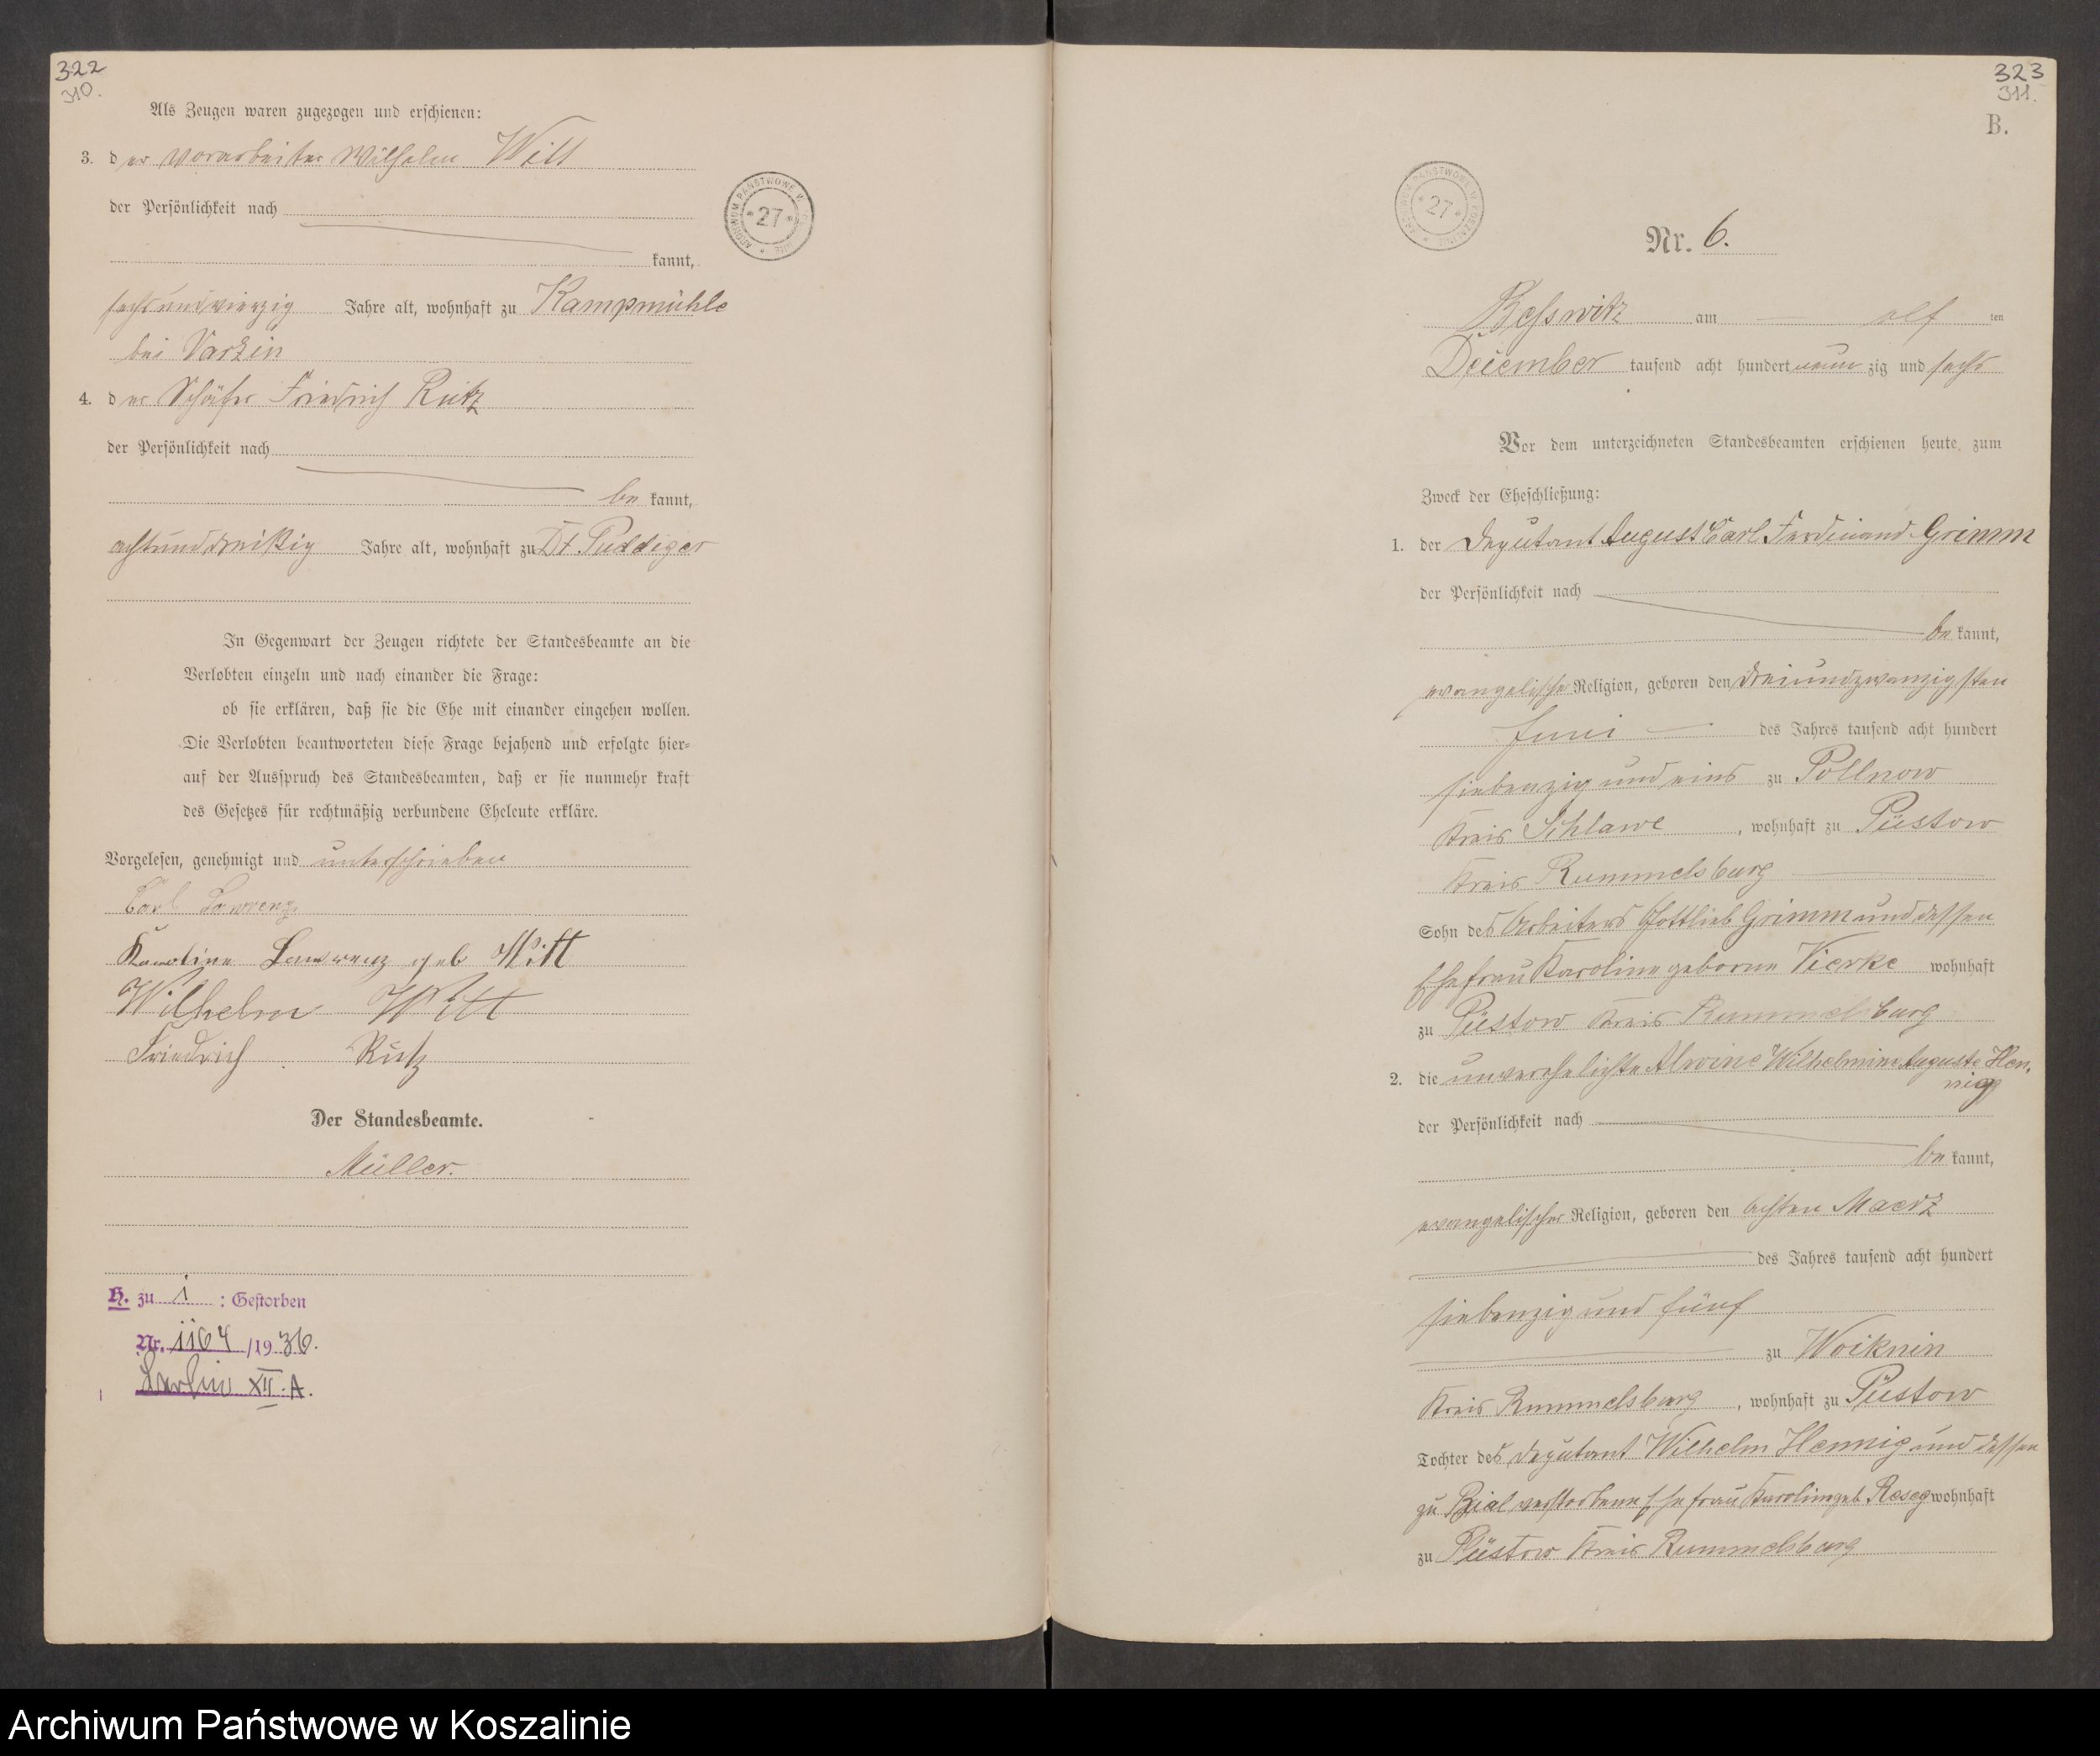 322
310.
Als Zeugen waren zugezogen und erschienen:
3. der Vorarbeiter Wilhelm Witt
der Persönlichkeit nach
kannt,
sechsundvierzig Jahre alt, wohnhaft zu Kampmühle
bei Varzin
4. der Schäfer Friedrich Rütz
der Persönlichkeit nach
be kannt,
achtunddreißig Jahre alt, wohnhaft zu Dt. Puddiger
In Gegenwart der Zeugen richtete der Standesbeamte an die
Verlobten einzeln und nach einander die Frage:
ob sie erklären, daß sie die Ehe mit einander eingehen wollen.
Die Verlobten beantworteten diese Frage bejahend und erfolgte hier-
auf der Ausspruch des Standesbeamten, daß er sie nunmehr kraft
des Gesetzes für rechtmäßig verbundene Eheleute erkläre.
Vorgelesen, genehmigt und unterschrieben
Carl Lawrenz
Karoline Lawrenz geb Witt
Wilhelm Witt
Friedrich Rütz
Der Standesbeamte.
Müller.
H. zu 1 : Gestorben
Nr. 1164 /1936.
Berlin XII. A.
ARCHIWUM PAŃSTWOWE W
* 27 *
323
311.
B.
ARCHIWUM PAŃSTWOWE W KOSZALINIE
* 27 *
Nr. 6.
Besswitz am elf ten
December tausend acht hundert neun zig und sechs
Vor dem unterzeichneten Standesbeamten erschienen heute, zum
Zweck der Eheschließung:
1. der Deputant August Carl Ferdinand Grimm
der Persönlichkeit nach
be kannt,
evangelischer Religion, geboren den dreiundzwanzigsten
Juni des Jahres tausend acht hundert
siebenzig und eins zu Pollnow
Kreis Schlawe, wohnhaft zu Püstow
Kreis Rummelsburg
Sohn des Arbeiters Gottlieb Grimm und dessen
Ehefrau Karoline geborne Vierke wohnhaft
zu Püstow Kreis Rummelsburg
2. die unverehelichte Alwine Wilhelmine Auguste Hen-
nig
der Persönlichkeit nach
be kannt,
evangelischer Religion, geboren den achten Maerz
des Jahres tausend acht hundert
siebenzig und fünf
zu Woiknin
Kreis Rummelsburg, wohnhaft zu Püstow
Tochter des Deputant Wilhelm Hennig und dessen
zu Bial verstorbene Ehefrau Karoline geb. wohnhaft
zu Püstow Kreis Rummelsburg
Archiwum Państwowe w Koszalinie